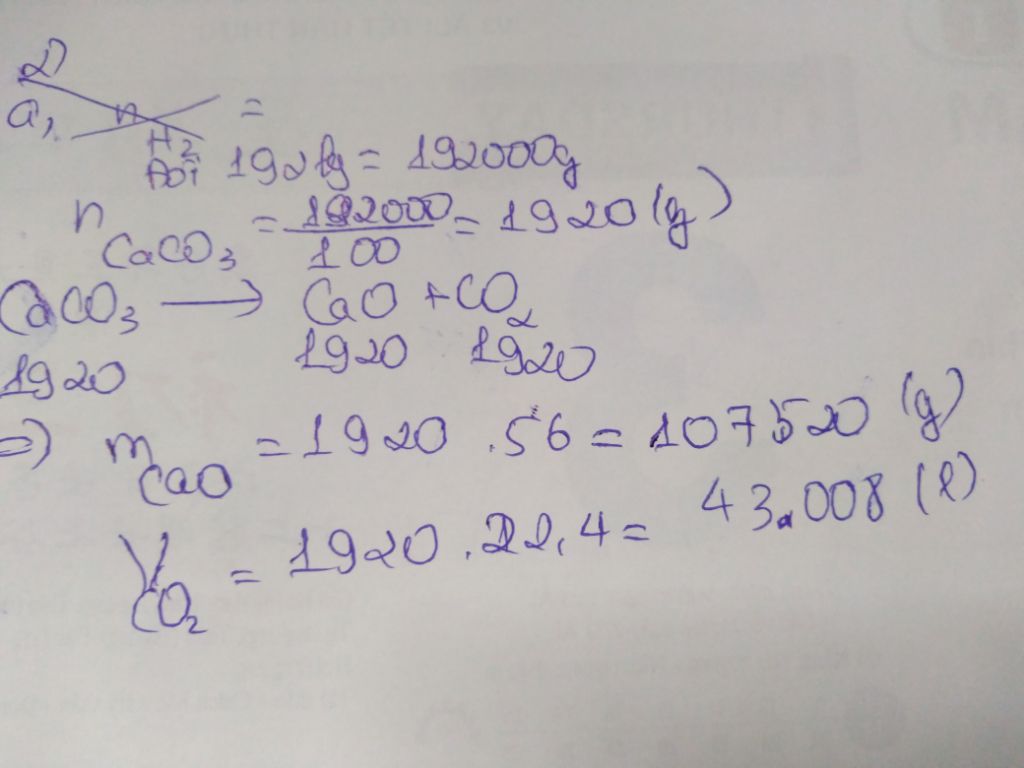 2)
a,
n H2 =
Đổi 192kg = 192000g
n CaCO3 = 192000/100 = 1920 (g)
CaCO3 → CaO + CO2
1920 1920 1920
=> mCaO = 1920 . 56 = 107520 (g)
VCO2 = 1920 . 22,4 = 43.008 (l)